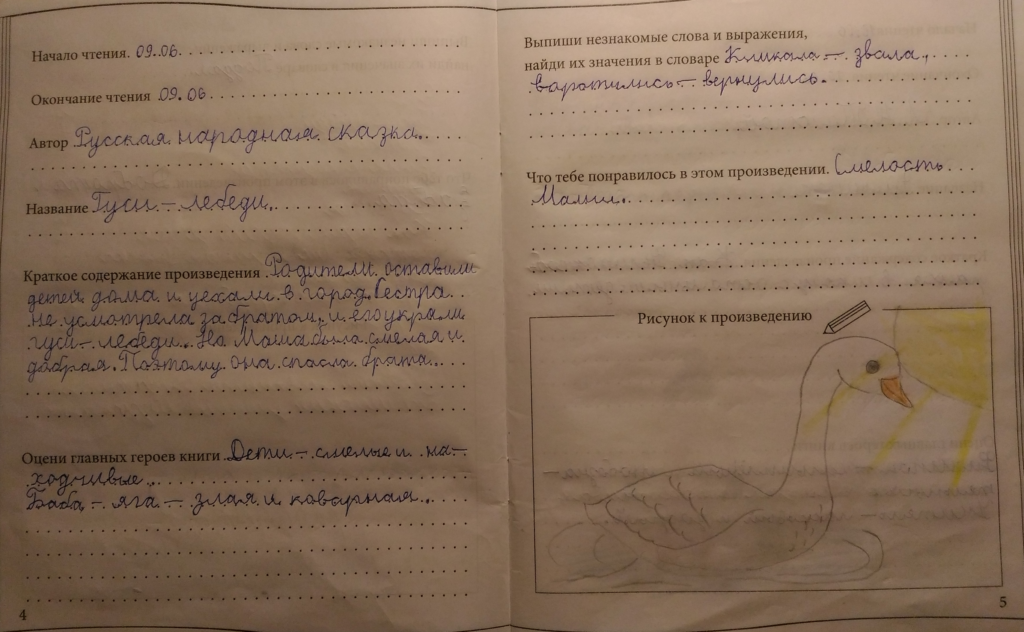 Начало чтения. 09.06.
Окончание чтения 09.06
Автор Русская народная сказка.
Название Гуси-лебеди.
Краткое содержание произведения Родители оставили
детей дома и уехали в город. Сестра
не усмотрела за братом, и его украли
гуси-лебеди. Но Маша была смелая и
добрая. Поэтому она спасла брата.
Оцени главных героев книги Дети - смелые и на-
ходчивые.
Баба - яга - злая и коварная.
4
Выпиши незнакомые слова и выражения,
найди их значения в словаре Кликала - звала,
варатились - вернулись.
Что тебе понравилось в этом произведении. Смелость
Маши.
Рисунок к произведению
5